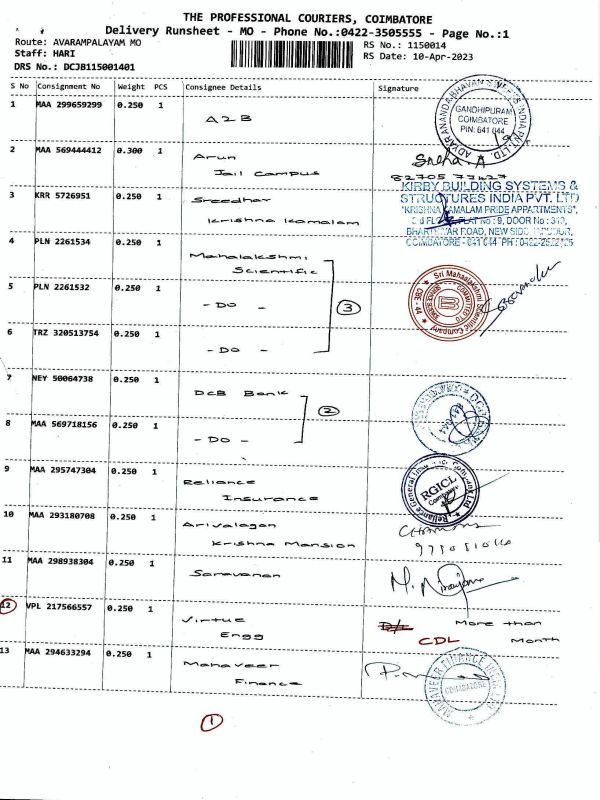 THE PROFESSIONAL COURIERS, COIMBATORE
Delivery Runsheet - MO - Phone No.:0422-3505555 - Page No.:1
Route: AVARAMPALAYAM MO
RS No.: 1150014
Staff: HARI
RS Date: 10-Apr-2023
DRS No.: DCJB115001401
S No Consignment No Weight PCS Consignee Details Signature
1 MAA 299659299 0.250 1
A2B
ADYAR ANANDA BHAVAN SWEETS INDIA PVT. LTD.
GANDHIPURAM
COIMBATORE
PIN: 641 044
2 MAA 569444412 0.300 1
Arun
Jail Campus
Sneha. A
82705 77427
3 KRR 5726951 0.250 1
Sreedhar
Krishna Kamalam
KIRBY BUILDING SYSTEMS &
STRUCTURES INDIA PVT. LTD
"KRISHNA KAMALAM PRIDE APPARTMENTS",
FLAT No : 9, DOOR No : 310,
BHARTHIYAR ROAD, NEW SIDDHAPUDUR,
COIMBATORE - 641 044 PH : 0422-2522105
4 PLN 2261534 0.250 1
Mahalakshmi
Scientific
5 PLN 2261532 0.250 1
- DO -
3
Sri Mahaalakshmi Scientific Company
CBE - 44
COMMITTED TO
6 TRZ 320513754 0.250 1
- DO -
7 NEY 50064738 0.250 1
DCB Bank
2
8 MAA 569718156 0.250 1
- DO -
DCB BANK
641 044
9 MAA 295747304 0.250 1
Reliance
Insurance
Reliance General Insurance Company Ltd
RGICL
Coimbatore
10 MAA 293180708 0.250 1
Arivalagan
Krishna Mansion
11 MAA 298938304 0.250 1
Saravanan
12 VPL 217566557 0.250 1
Virtue
Engg
More than
CDL Month
13 MAA 294633294 0.250 1
Mahaveer
Finance
MAHAVEER FINANCE INDIA LTD
COIMBATORE
1